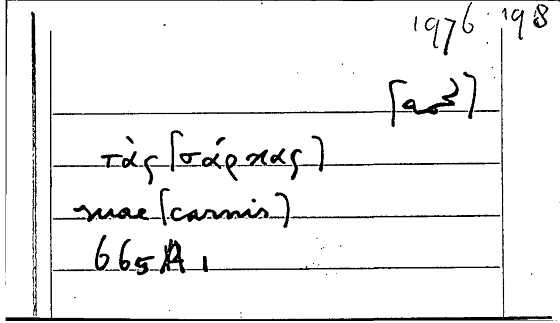 1976 198
τὰς [σάρκας]
suae [carnis]
665A1